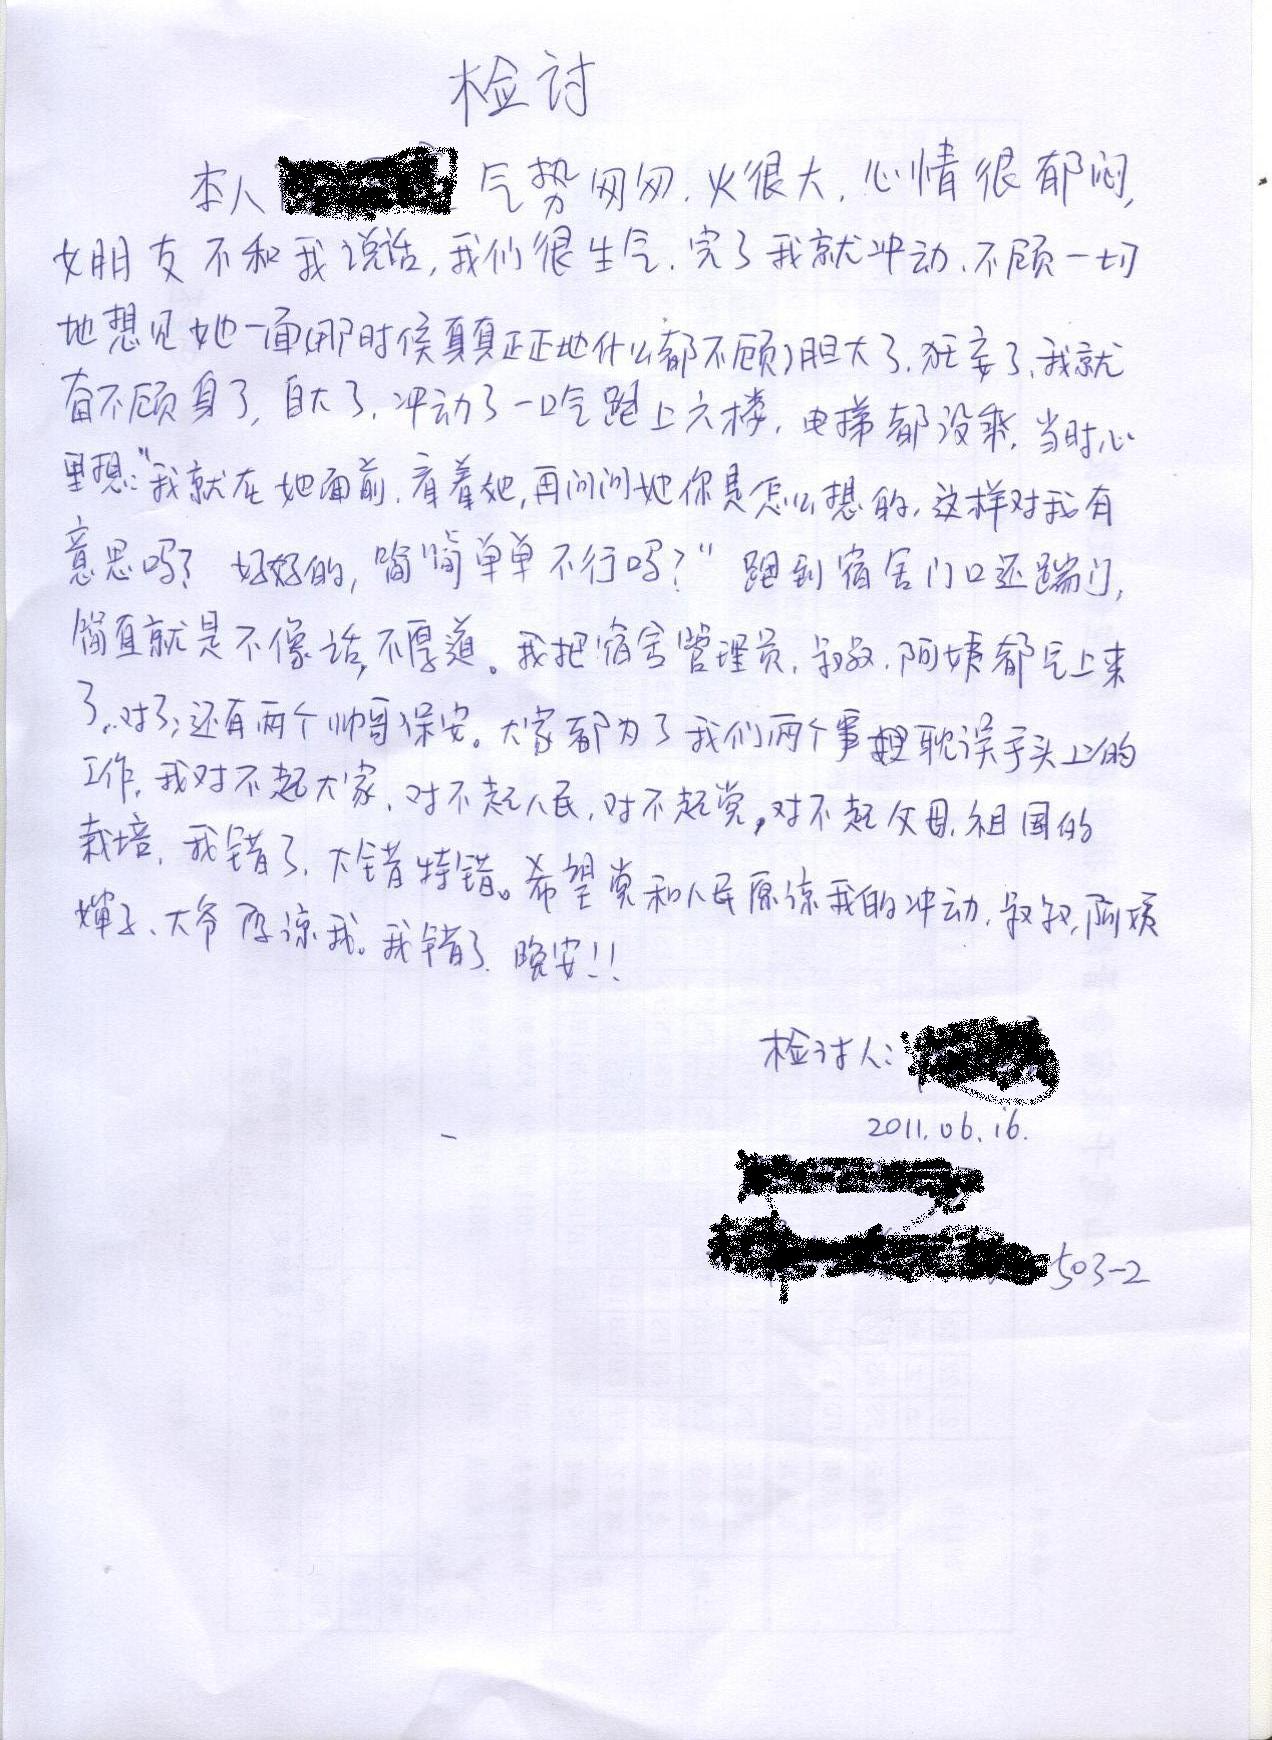 检讨
本人 气势匆匆.火很大.心情很郁闷,
女朋友不和我说话,我们很生气.完了我就冲动.不顾一切
地想见她一面(那时候真真正正地什么都不顾)胆大了.狂妄了.我就
奋不顾身了,自大了.冲动了一口气跑上六楼,电梯都没乘.当时心
里想:"我就在她面前.看着她,再问问她你是怎么想的,这样对我有
意思吗?好好的,简简单单不行吗?"跑到宿舍门口还踹门,
简直就是不像话,不厚道。我把宿舍管理员.叔叔.阿姨都气上来
了..对了;还有两个帅哥保安。大家都为了我们两个事耽误手头上的
工作.我对不起大家.对不起人民,对不起党,对不起父母.祖国的
栽培.我错了.大错特错。希望党和人民原谅我的冲动.叔叔,阿姨
婶子、大爷原谅我。我错了.晚安!!
检讨人:
2011.06.16.
503-2